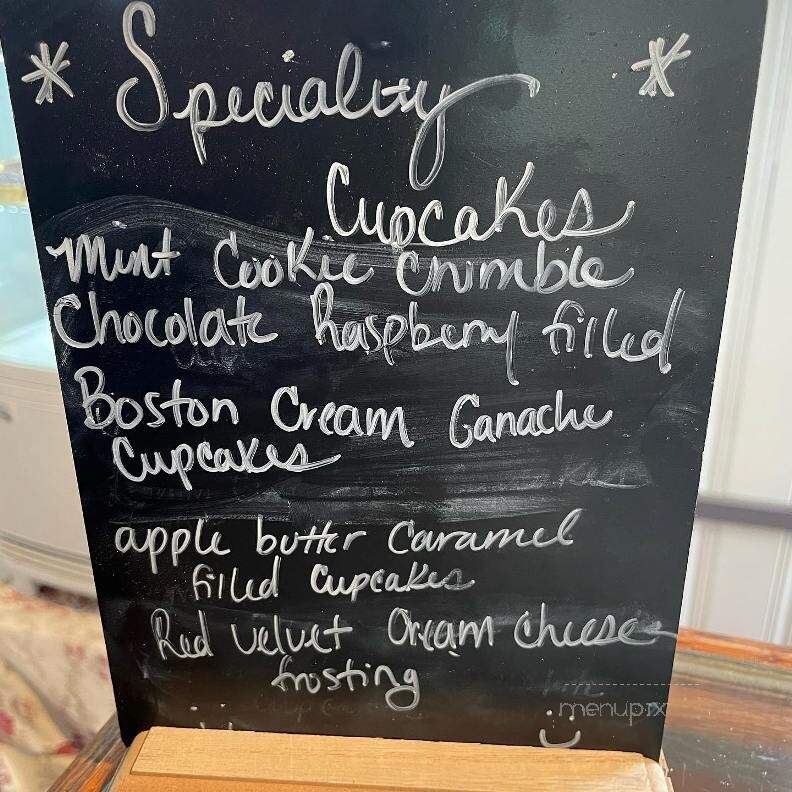 * Speciality *
Cupcakes
Mint Cookie Crumble
Chocolate Raspberry filled
Boston Cream Ganache
Cupcakes
apple butter Caramel
filled Cupcakes
Red velvet Cream cheese
frosting
menupix